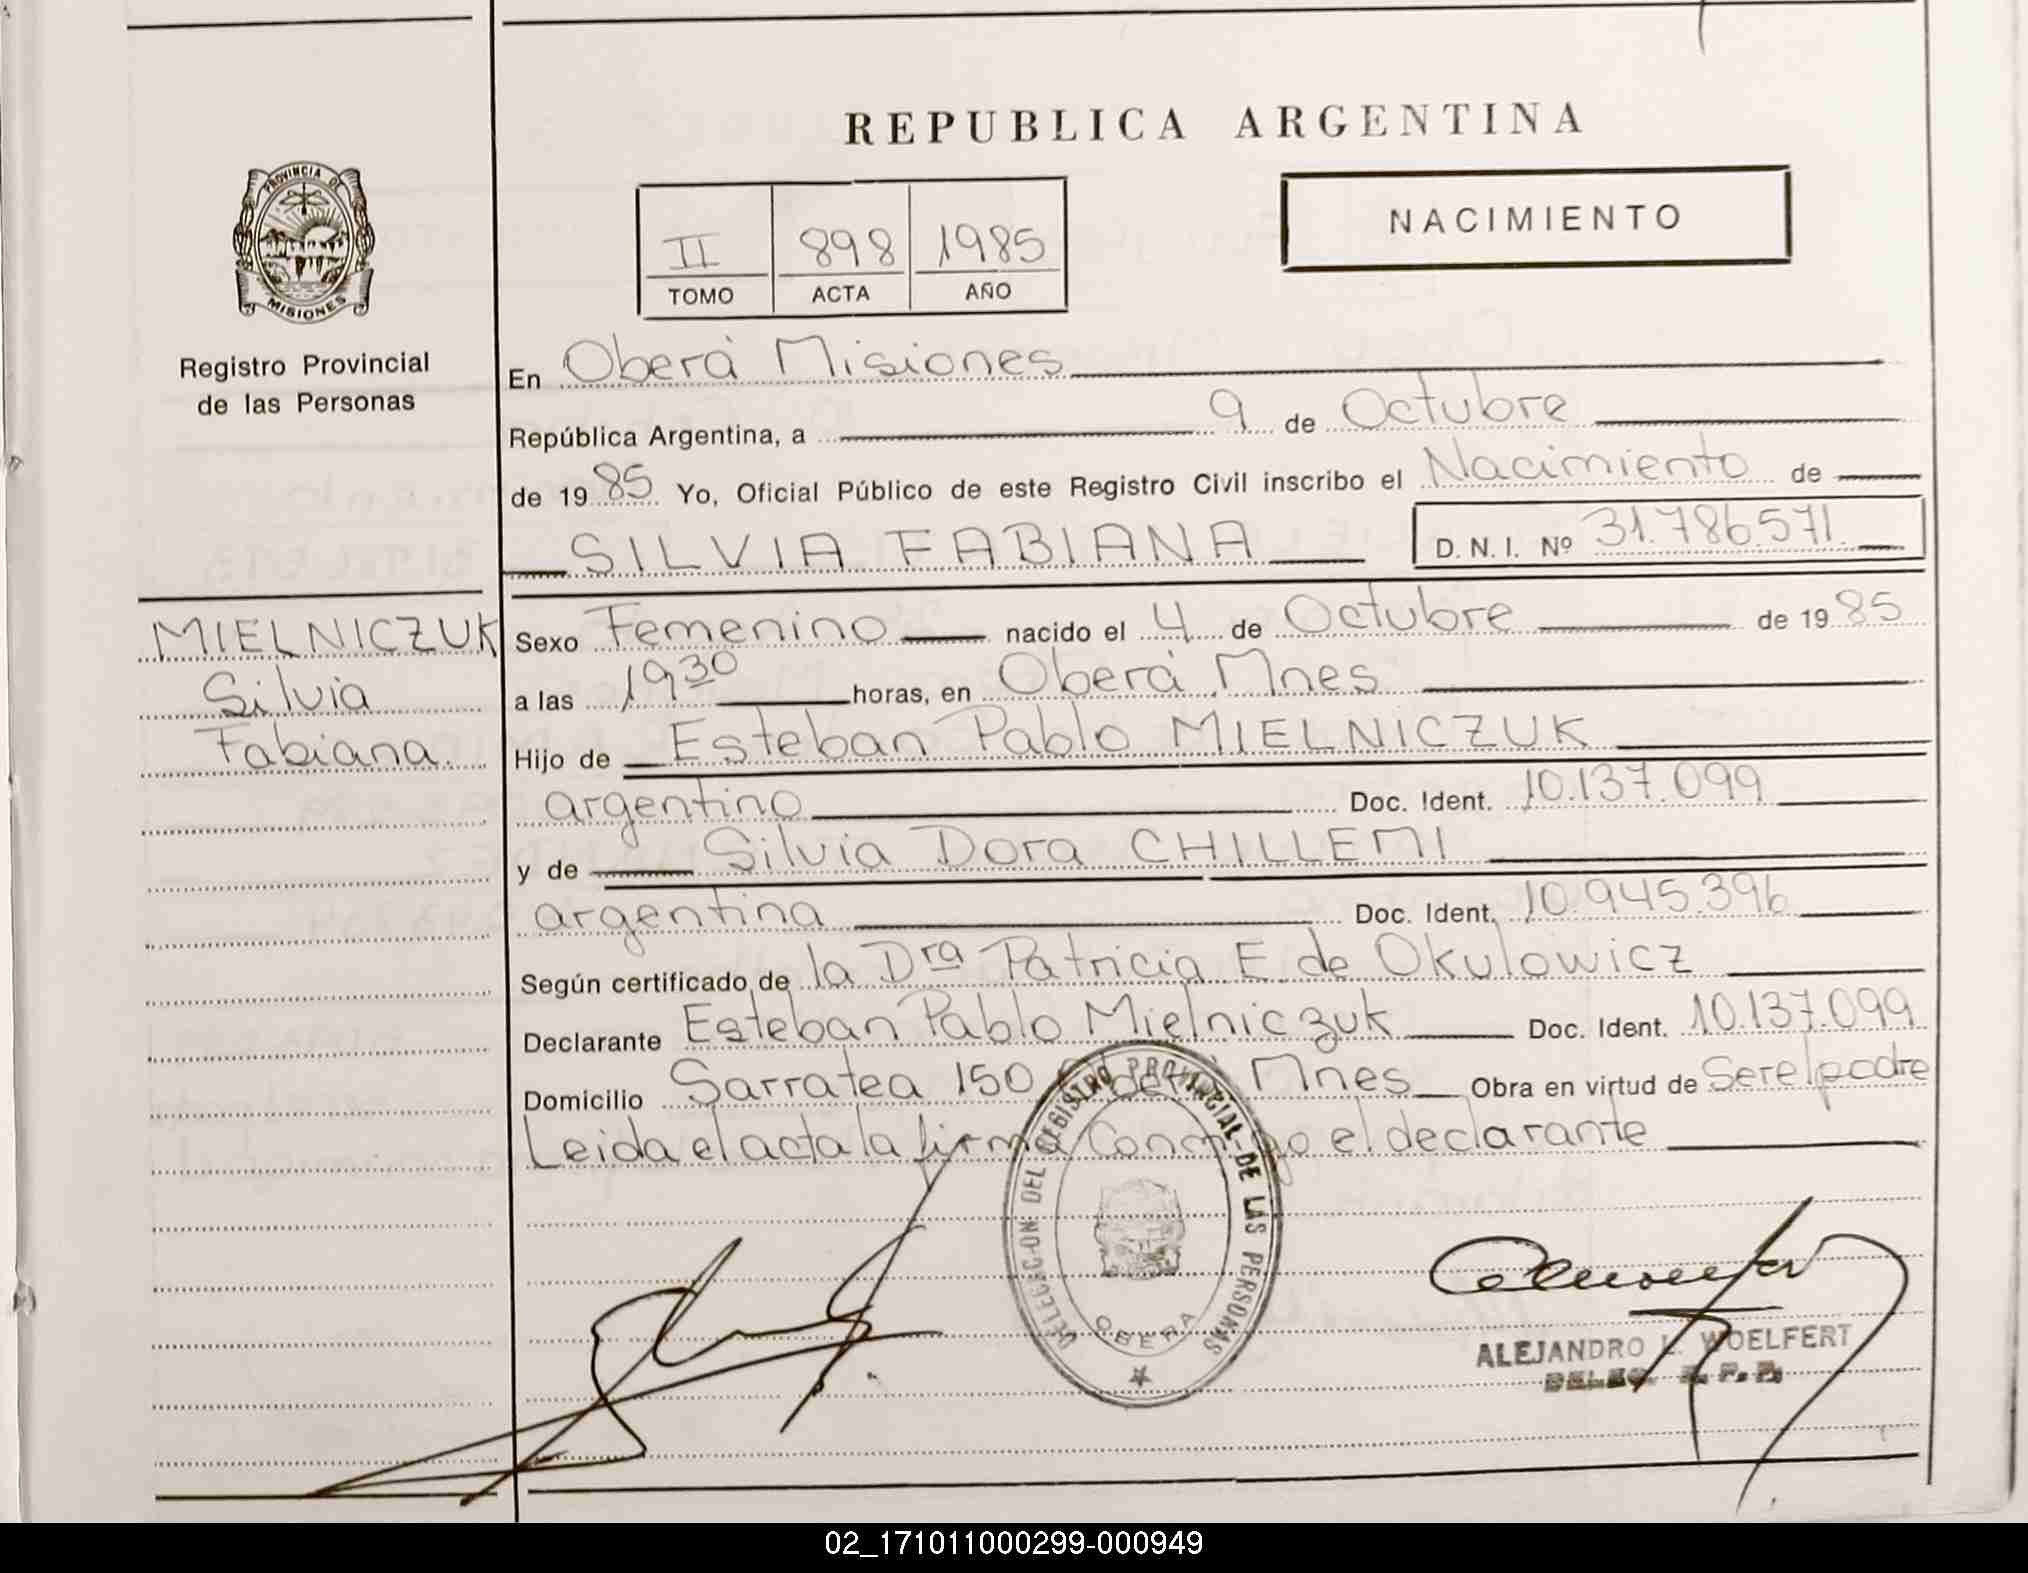 REPUBLICA ARGENTINA
PROVINCIA DE
MISIONES
Registro Provincial
de las Personas
II 898 1985
TOMO ACTA AÑO
NACIMIENTO
En Oberá Misiones
República Argentina, a 9 de Octubre
de 1985 Yo, Oficial Público de este Registro Civil inscribo el Nacimiento de
SILVIA FABIANA D. N. I. Nº 31.786.571
MIELNICZUK
Silvia
Fabiana.
Sexo Femenino nacido el 4 de Octubre de 1985
a las 19 30 horas, en Oberá Mnes
Hijo de Esteban Pablo MIELNICZUK
argentino Doc. Ident. 10.137.099
y de Silvia Dora CHILLEMI
argentina Doc. Ident. 10.945.396
Según certificado de la Dra Patricia E de Okulowicz
Declarante Esteban Pablo Mielniczuk Doc. Ident. 10.137.099
Domicilio Sarratea 150 Oberá Mnes Obra en virtud de Ser el padre
Leida el acta la firma Conmigo el declarante
DELEGACION DEL REGISTRO PROVINCIAL DE LAS PERSONAS
OBERA
ALEJANDRO L. WOELFERT
DELEG. R. P. P.
02_171011000299-000949